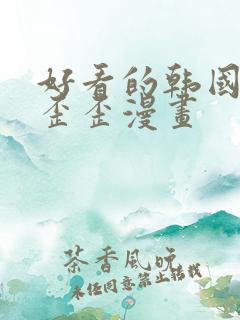 好看的韩国
歪歪漫畫
茶香風晚
未经同意禁止转载